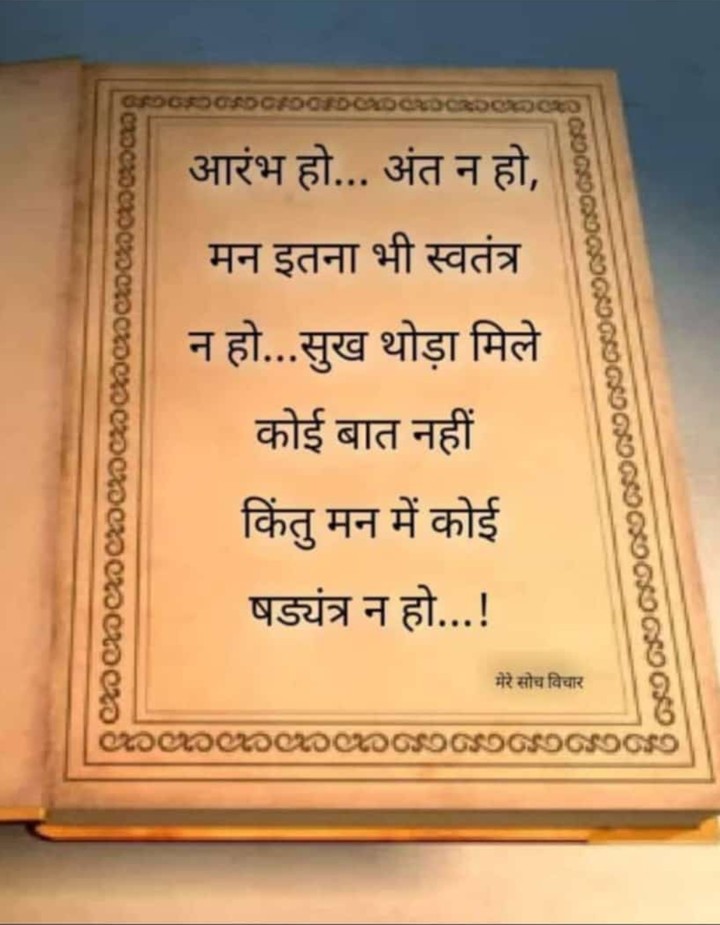 आरंभ हो... अंत न हो,
मन इतना भी स्वतंत्र
न हो...सुख थोड़ा मिले
कोई बात नहीं
किंतु मन में कोई
षड्यंत्र न हो...!
मेरे सोच विचार